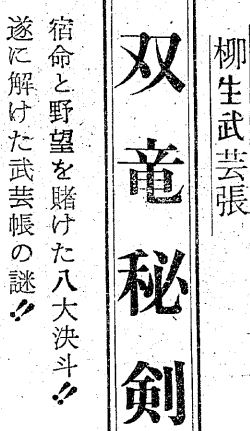 柳生武芸張
双竜秘剣
宿命と野望を賭けた八大決斗!!
遂に解けた武芸帳の謎!!